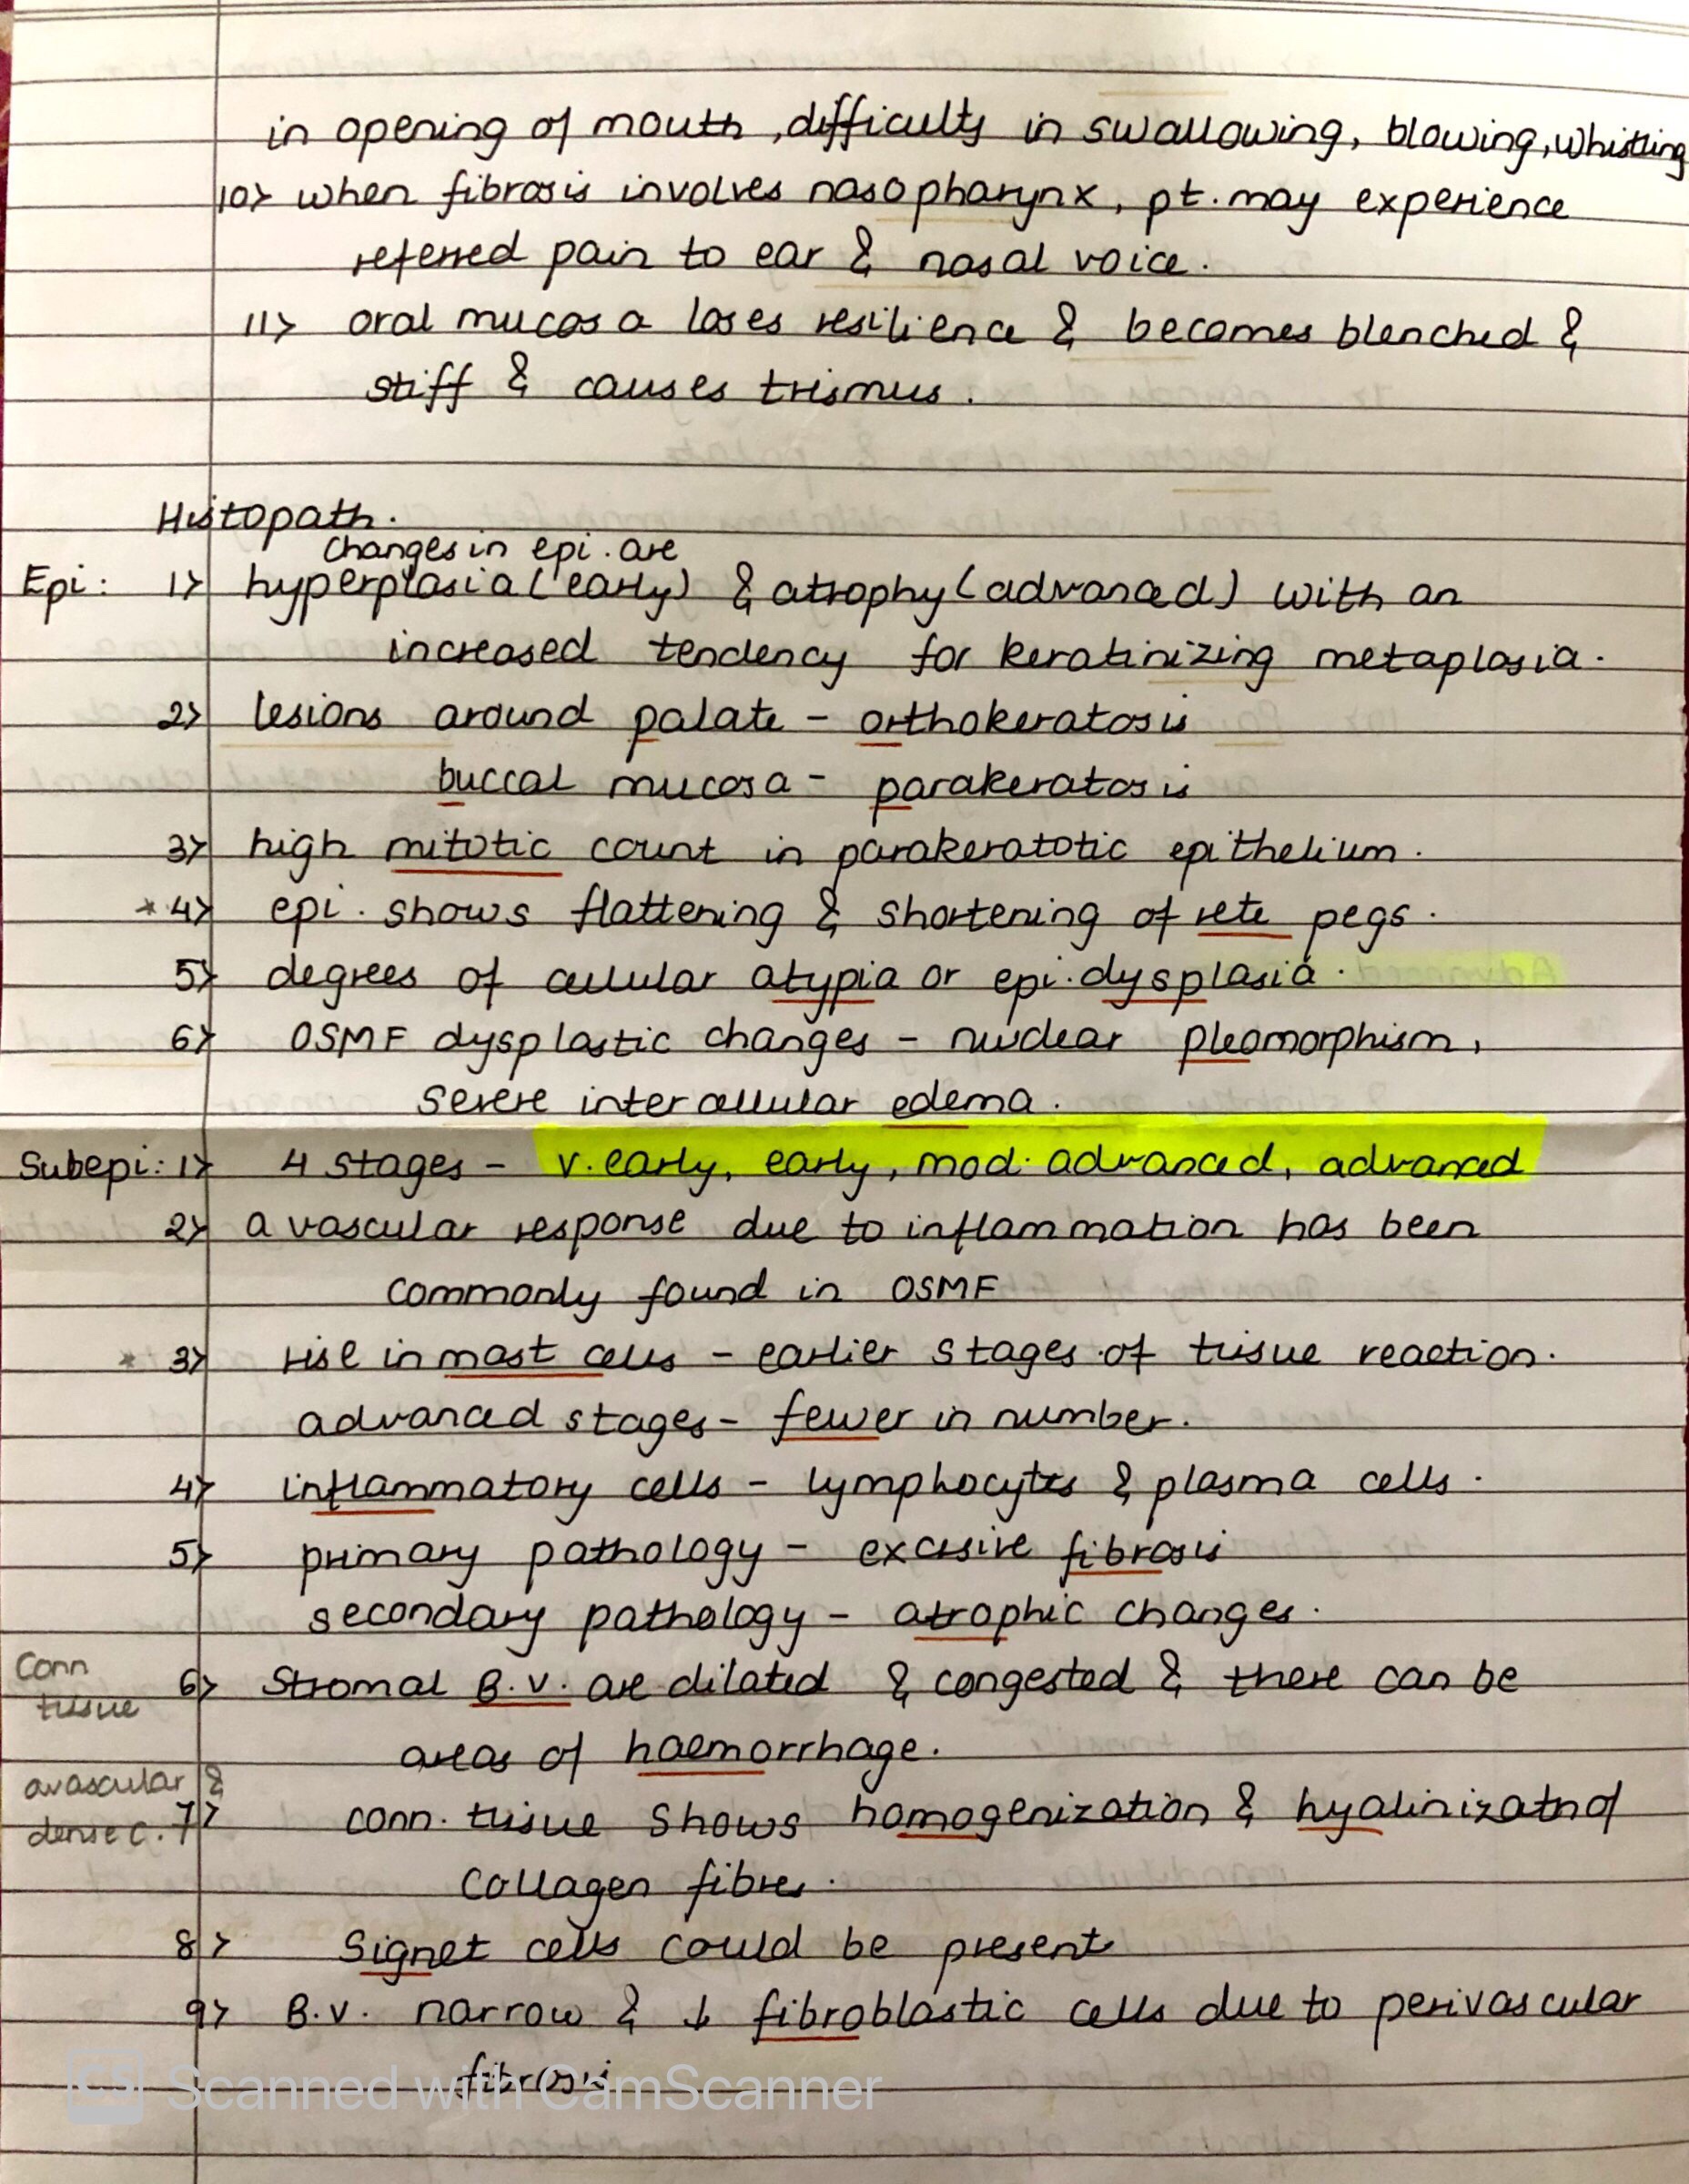 in opening of mouth, difficulty in swallowing, blowing, whistling
10> when fibrosis involves nasopharynx, pt. may experience
referred pain to ear & nasal voice.
11> oral mucosa loses resilience & becomes blenched &
stiff & causes trismus.
Histopath.
changes in epi. are
Epi: 1> hyperplasia (early) & atrophy (advanced) with an
increased tendency for keratinizing metaplasia.
2> lesions around palate - orthokeratosis
buccal mucosa - parakeratosis
3> high mitotic count in parakeratotic epithelium.
* 4> epi. shows flattening & shortening of rete pegs.
5> degrees of cellular atypia or epi. dysplasia.
6> OSMF dysplastic changes - nuclear pleomorphism,
severe intercellular edema.
Subepi: 1> 4 stages - v. early, early, mod. advanced, advanced
2> a vascular response due to inflammation has been
commonly found in OSMF
* 3> rise in mast cells - earlier stages of tissue reaction.
advanced stages - fewer in number.
4> inflammatory cells - lymphocytes & plasma cells.
5> primary pathology - excesive fibrosis
secondary pathology - atrophic changes.
Conn tissue 6> Stromal B.V. are dilated & congested & there can be
areas of haemorrhage.
avascular & dense c. 7> conn. tissue shows homogenization & hyalinizatn of
collagen fibres.
8> Signet cells could be present
9> B.V. narrow & ↓ fibroblastic cells due to perivascular
fibrosis
CS Scanned with CamScanner